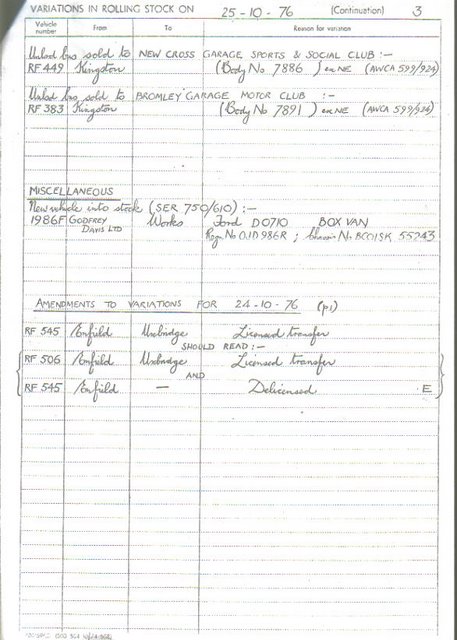 VARIATIONS IN ROLLING STOCK ON 25-10-76 (Continuation) 3
Vehicle number From To Reason for variation
Unlsd bus sold to NEW CROSS GARAGE SPORTS & SOCIAL CLUB :-
RF 449 Kingston (Body No 7886 ) ex NE (AWCA 599/924)
Unlsd bus sold to BROMLEY GARAGE MOTOR CLUB :-
RF 383 Kingston (Body No 7891 ) ex NE (AWCA 599/924)
MISCELLANEOUS
New vehicle into stock (SER 750/610) :-
1986F GODFREY Works Ford D0710 BOX VAN
DAVIS LTD Regn. No OJD 986R ; Chassis No. BC01SK 55243
AMENDMENTS TO VARIATIONS FOR 24-10-76 (p1)
RF 545 Enfield Uxbridge Licensed transfer
SHOULD READ :-
RF 506 Enfield Uxbridge Licensed transfer
AND
RF 545 Enfield — Delicensed E